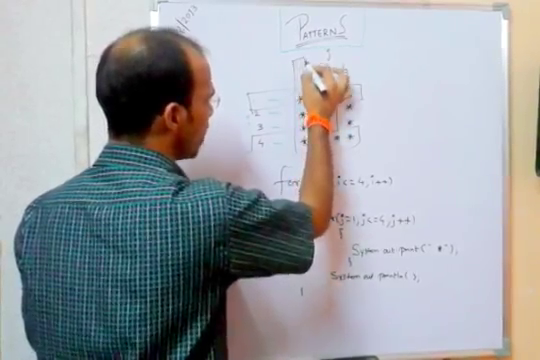 /2013
PATTERNS
j
* *
2 * *
3 * *
4 * * *
for i<=4, i++)
(j=1, j<=4, j++)
{
System.out.print("*");
}
System.out.println();